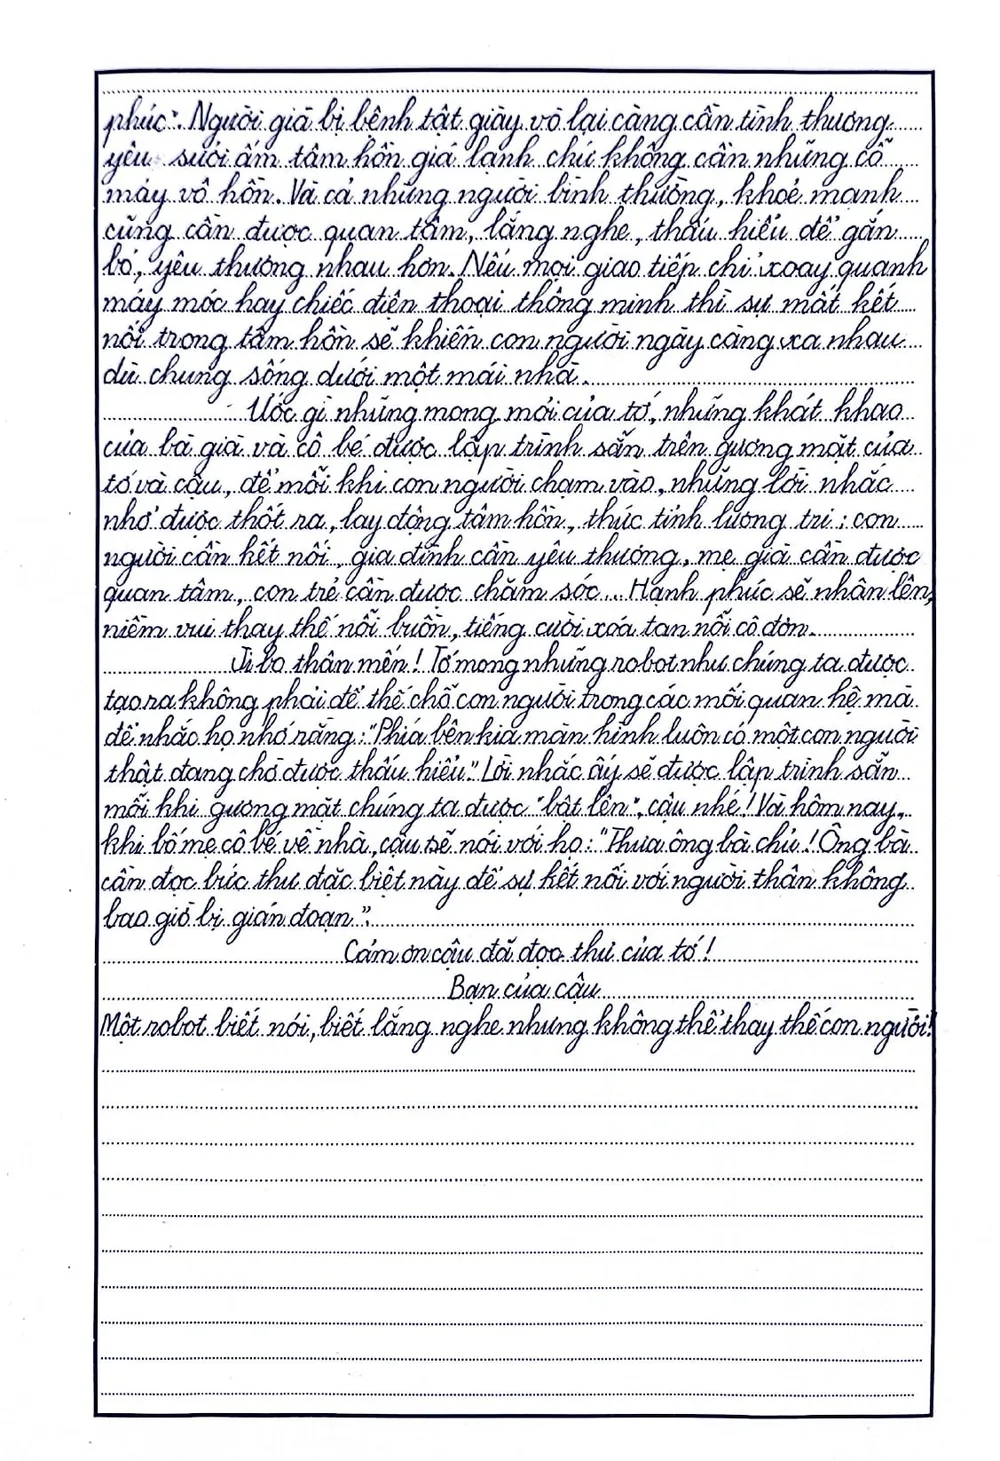 phúc". Người già bị bệnh tật giày vò lại càng cần tình thương
yêu sưởi ấm tâm hồn giá lạnh chứ không cần những cỗ
máy vô hồn. Và cả những người bình thường, khoẻ mạnh
cũng cần được quan tâm, lắng nghe, thấu hiểu để gắn
bó, yêu thương nhau hơn. Nếu mọi giao tiếp chỉ xoay quanh
máy móc hay chiếc điện thoại thông minh thì sự mất kết
nối trong tâm hồn sẽ khiến con người ngày càng xa nhau
dù chung sống dưới một mái nhà.
Ước gì những mong mỏi của tớ, những khát khao
của bà già và cô bé được lập trình sẵn trên gương mặt của
tớ và cậu, để mỗi khi con người chạm vào, những lời nhắc
nhở được thốt ra, lay động tâm hồn, thức tỉnh lương tri: con
người cần kết nối, gia đình cần yêu thương, mẹ già cần được
quan tâm, con trẻ cần được chăm sóc... Hạnh phúc sẽ nhân lên,
niềm vui thay thế nỗi buồn, tiếng cười xóa tan nỗi cô đơn.
Ji bo thân mến! Tớ mong những robot như chúng ta được
tạo ra không phải để thế chỗ con người trong các mối quan hệ mà
để nhắc họ nhớ rằng: "Phía bên kia màn hình luôn có một con người
thật đang chờ được thấu hiểu". Lời nhắc ấy sẽ được lập trình sẵn
mỗi khi gương mặt chúng ta được "bật lên", cậu nhé! Và hôm nay,
khi bố mẹ cô bé về nhà, cậu sẽ nói với họ: "Thưa ông bà chủ! Ông bà
cần đọc bức thư đặc biệt này để sự kết nối với người thân không
bao giờ bị gián đoạn".
Cảm ơn cậu đã đọc thư của tớ!
Bạn của cậu
Một robot biết nói, biết lắng nghe nhưng không thể thay thế con người!